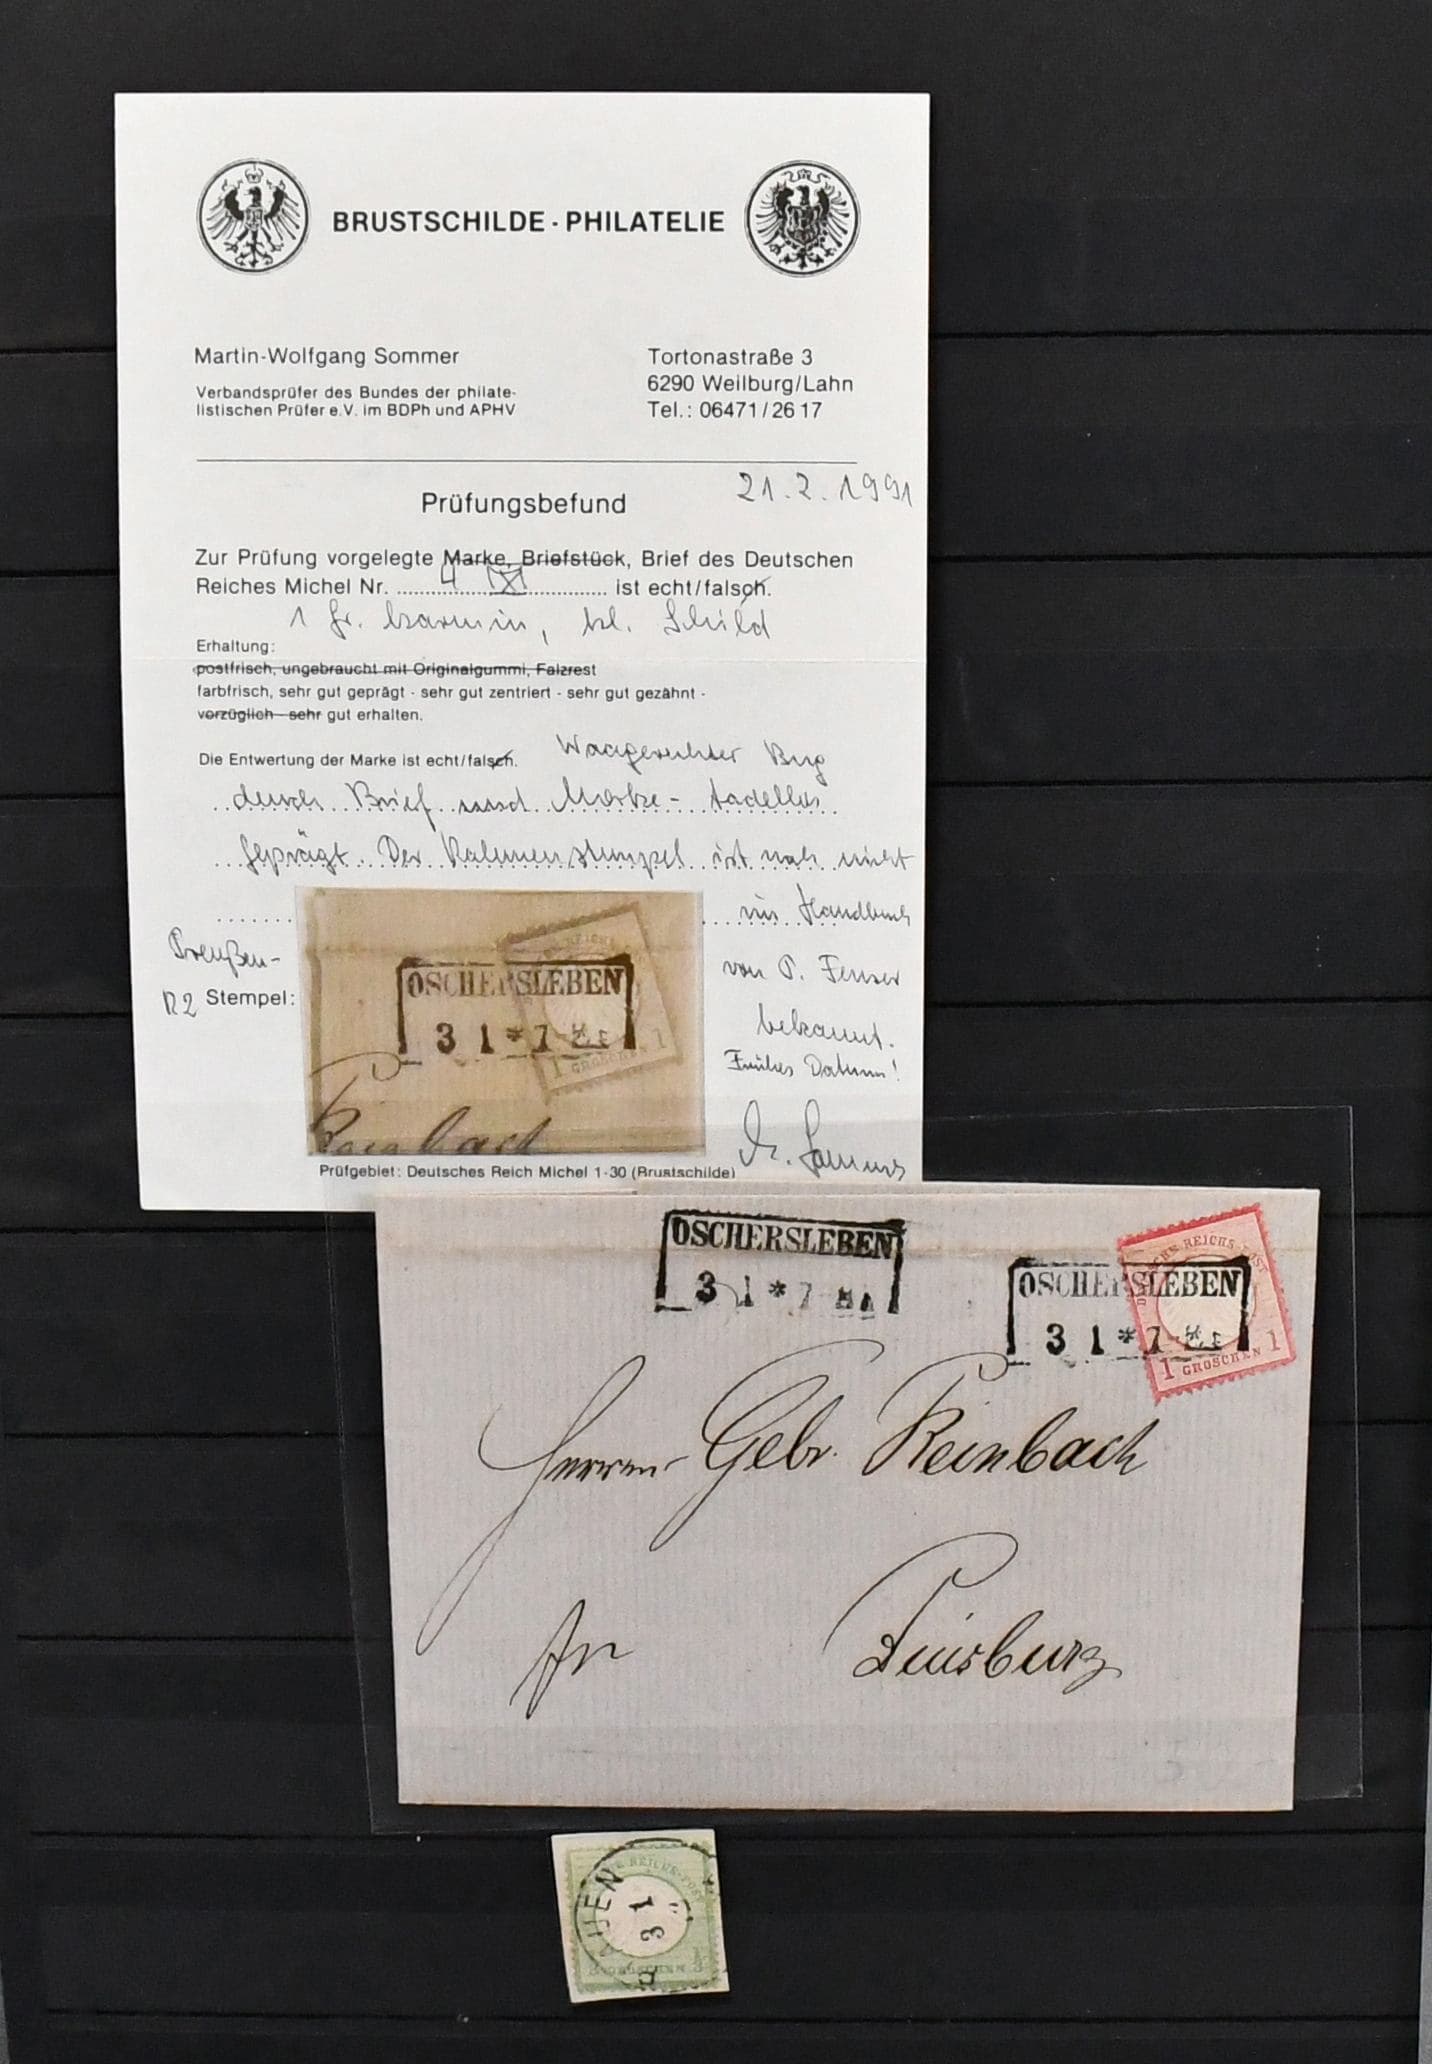 BRUSTSCHILDE - PHILATELIE
Martin-Wolfgang Sommer
Verbandsprüfer des Bundes der philate-
listischen Prüfer e.V. im BDPh und APHV
Tortonastraße 3
6290 Weilburg/Lahn
Tel.: 06471/26 17
21.2.1991
Prüfungsbefund
Zur Prüfung vorgelegte Marke, Briefstück, Brief des Deutschen
Reiches Michel Nr. 4 ist echt/falsch.
1 Gr. karmin, kl. Schild
Erhaltung:
postfrisch, ungebraucht mit Originalgummi, Falzrest
farbfrisch, sehr gut geprägt - sehr gut zentriert - sehr gut gezähnt -
vorzüglich - sehr gut erhalten.
Die Entwertung der Marke ist echt/falsch. Waagerechter Bug
durch Brief und Marke - tadellos
geprägt. Der Rahmenstempel ist noch nicht
im Handbuch
Preußen-
R2 Stempel:
von P. Feuser
bekannt.
Frühes Datum!
OSCHERSLEBEN
3 1 * 7
1 GROSCHEN 1
Reinbach
M. Sommer
Prüfgebiet: Deutsches Reich Michel 1-30 (Brustschilde)
OSCHERSLEBEN
3 1 * 7
OSCHERSLEBEN
3 1 * 7
REICHS-POST
1 GROSCHEN 1
Herren Gebr. Reinbach
In Duisburg
3 1